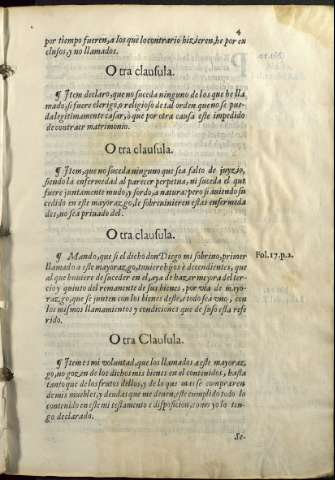 4
por tiempo fueren, a los que lo contrario hizieren, he por en
clusos, y no llamados.
Otra clausula.
¶ Item declaro, que no suceda ninguno de los que he lla
mado, si fuere clerigo, o religioso de tal orden que no se pue-
da legitimamente casar, o que por otra causa este impedido
de contraer matrimonio.
Otra clausula.
¶ Item, que no suceda ninguno que sea falto de juyzio,
siendo la enfermedad al parecer perpetua, ni suceda el que
fuere juntamente mudo, y sordo, a natura: pero si auiendo su
cedido en este mayorazgo, le sobreuinieren estas enfermeda
des, no sea priuado del.
Otra clausula.
¶ Mando, que si el dicho don Diego mi sobrino, primer
llamado a este mayorazgo, tuuiere hijos e decendientes, que
al que houiere de suceder en el, aya de hazer mejora del ter-
cio y quinto del remanente de sus bienes, por via de mayo-
razgo, que se junten con los bienes deste, e todo sea vno, con
los mismos llamamientos y condiciones que de suso esta refe
rido.
Fol. 17. p. 2.
Otra Clausula.
¶ Item es mi voluntad, que los llamados a este mayoraz-
go, no gozen de los dichos mis bienes en el contenidos, hasta
tanto que de los frutos dellos, y de lo que mas se comprare
de mis muebles, y deudas que me deuen, este cumplido todo lo
contenido en este mi testamento e disposicion, como yo lo ten-
go declarado.
Se-